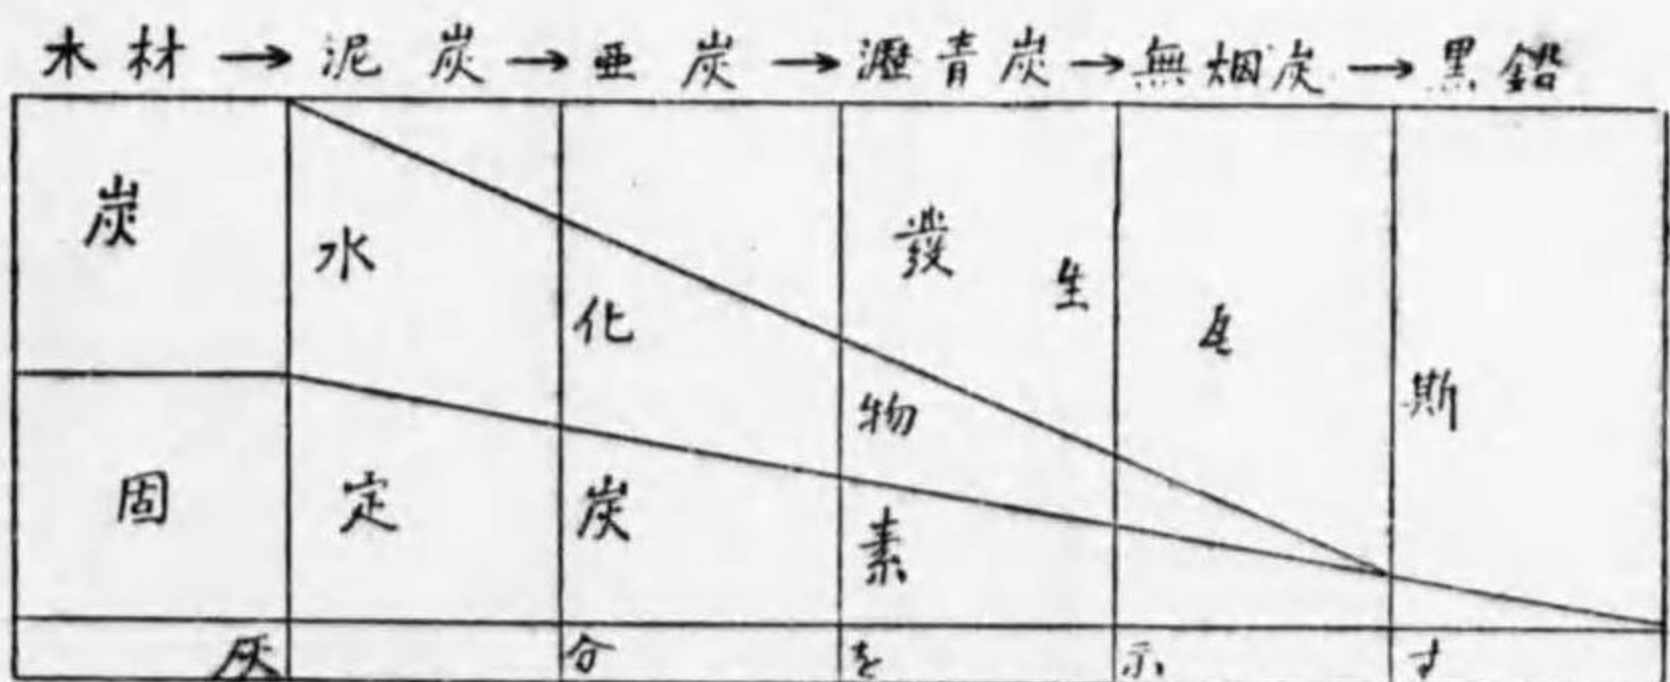 木材→泥炭→亜炭→瀝青炭→無烟炭→黒鉛
炭水化物
發生瓦斯
固定炭素
灰分を示す